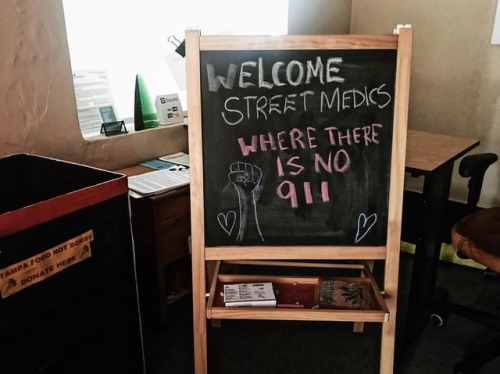 WELCOME
STREET MEDICS
WHERE THERE
IS NO
911
TAMPA FOOD NOT BOMBS
DONATE HERE